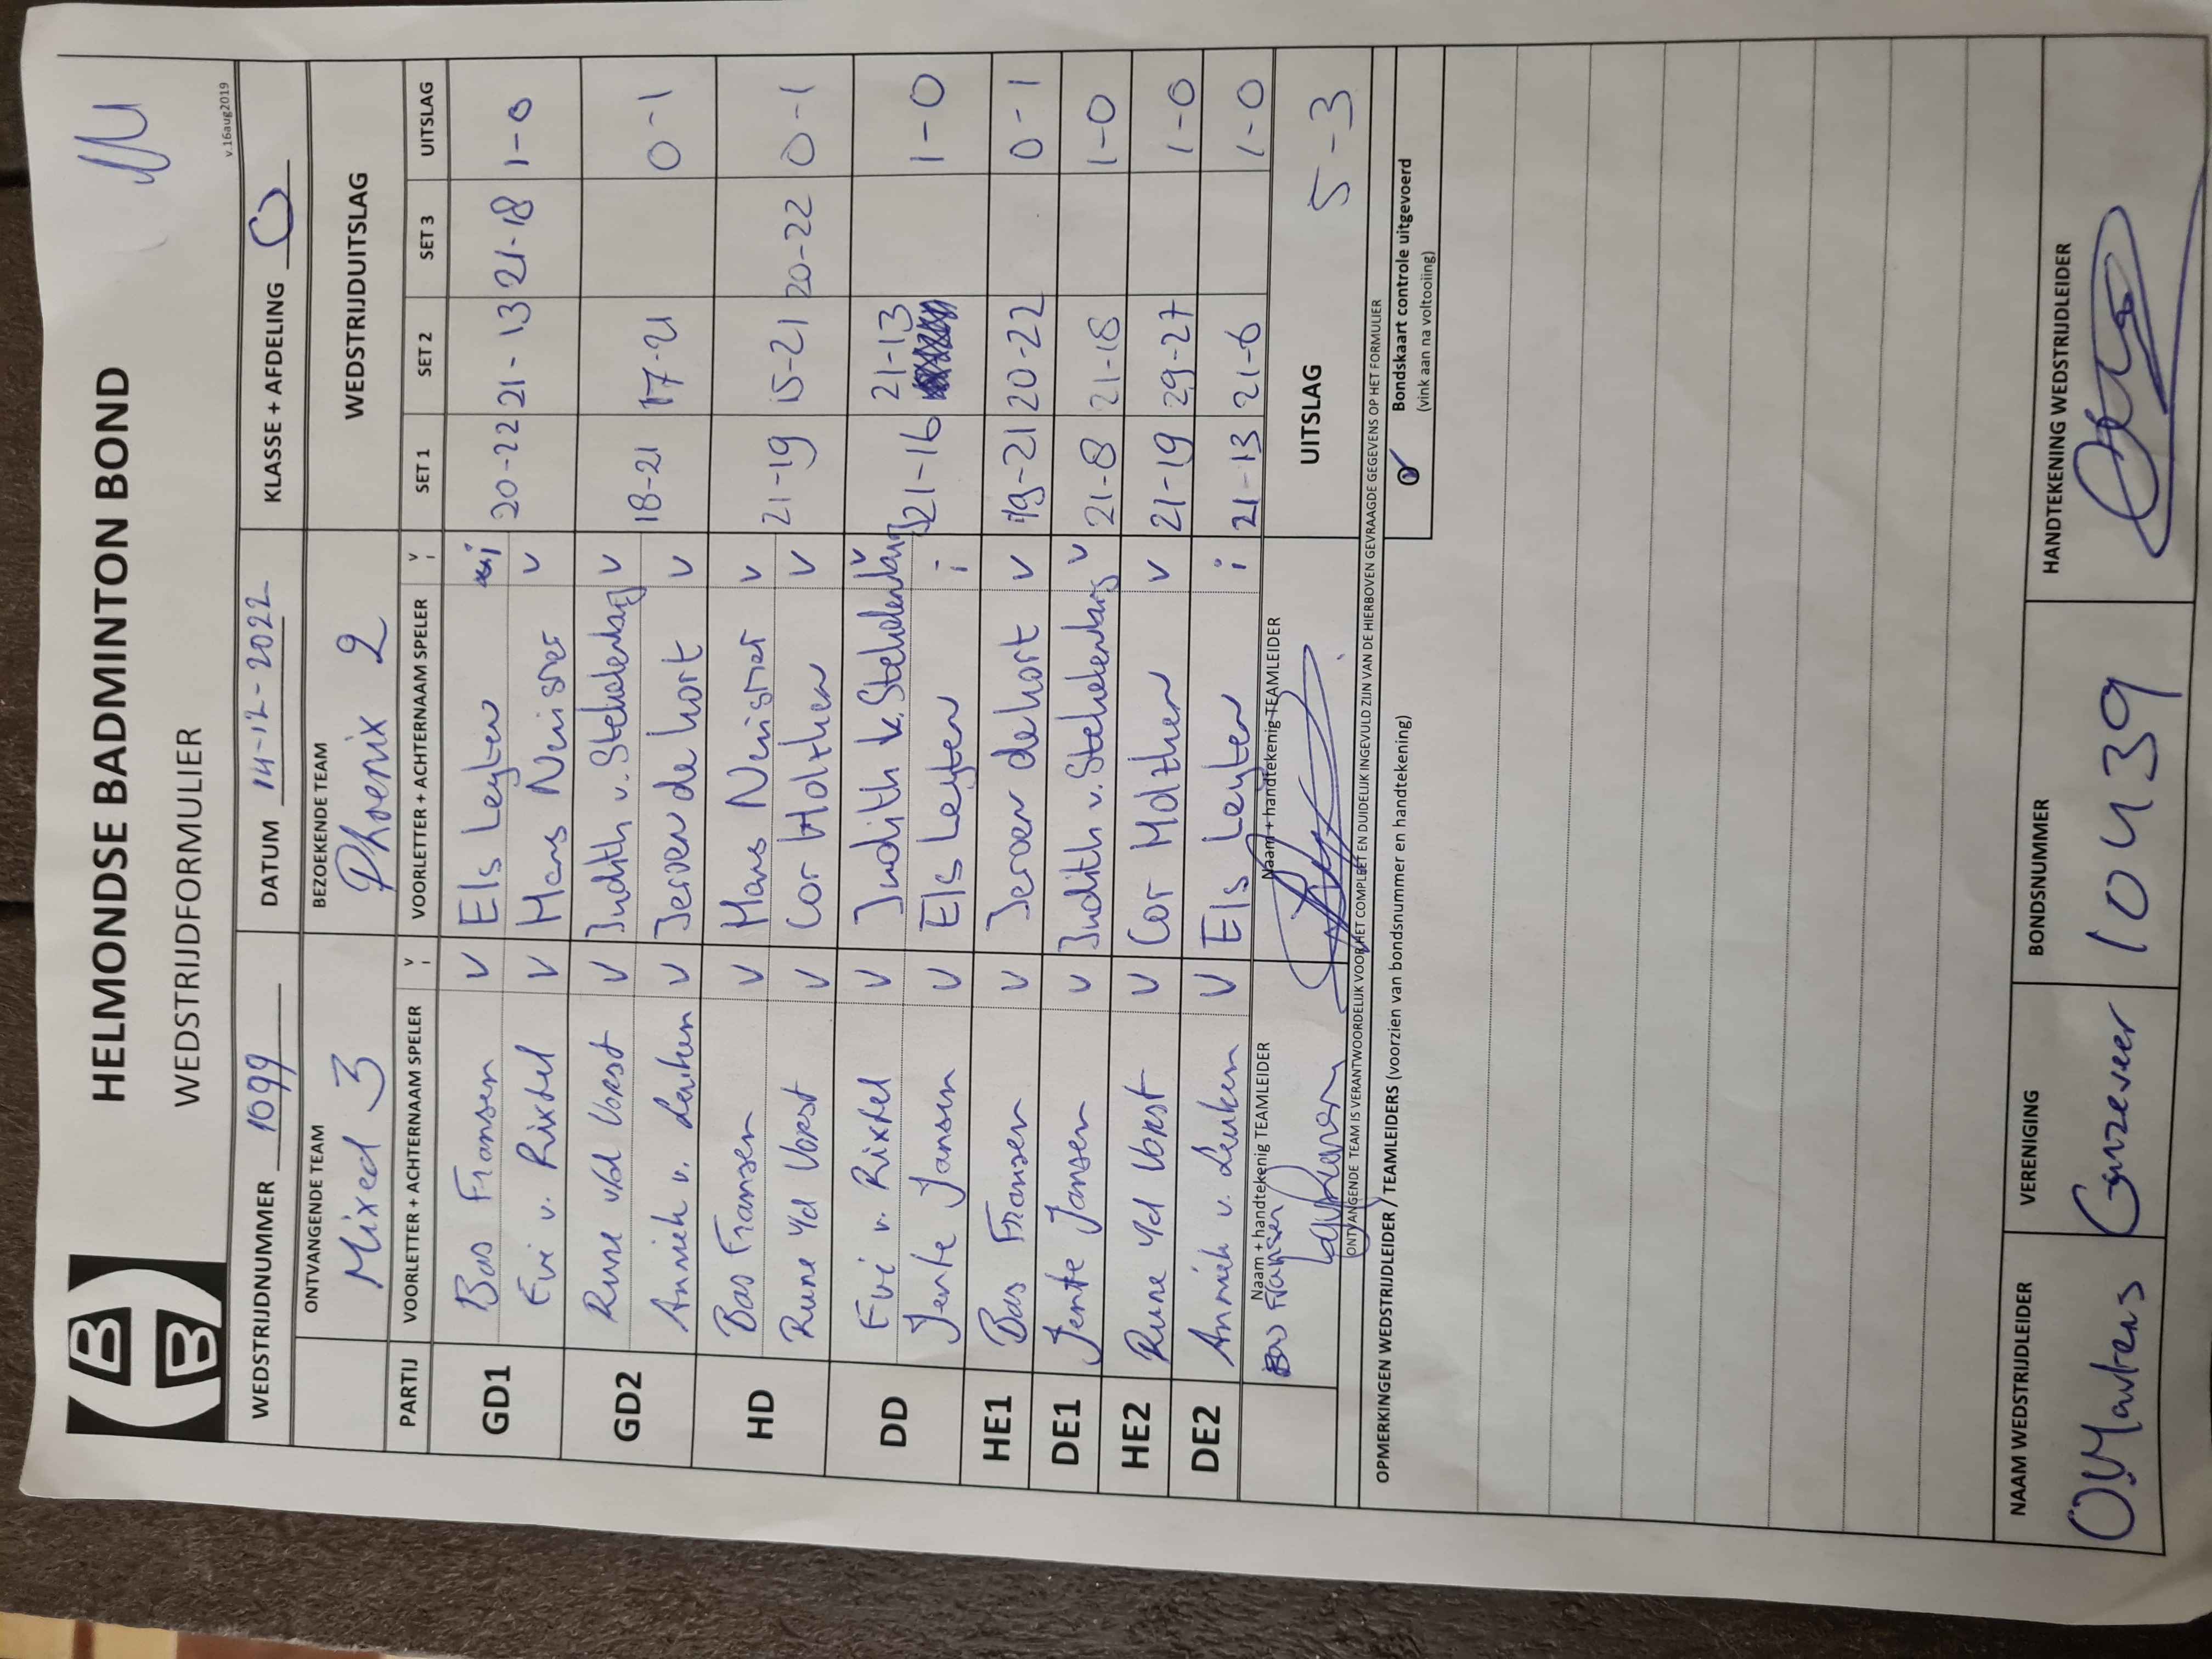 HELMONDSE BADMINTON BOND
WEDSTRIJDFORMULIER
v.16aug2019
WEDSTRIJDNUMMER 1099 DATUM 14-12-2022 KLASSE + AFDELING O
ONTVANGENDE TEAM BEZOEKENDE TEAM WEDSTRIJDUITSLAG
Mixed 3 Phoenix 2
PARTIJ VOORLETTER + ACHTERNAAM SPELER V I VOORLETTER + ACHTERNAAM SPELER V I SET 1 SET 2 SET 3 UITSLAG
GD1 Bas Fransen V Els Leyten i 20-22 21-13 21-18 1-0
Evi v. Rixtel V Hans Neusner V
GD2 Rune v/d Vorst V Judith v. Stekelenburg V 18-21 17-21 0-1
Anniek v. Leuken V Jeroen de hort V
HD Bas Fransen V Hans Neusner V 21-19 15-21 20-22 0-1
Rune v/d Vorst V Cor Holthen V
DD Evi v. Rixtel V Judith v. Stekelenburg V 21-16 21-13 1-0
Jente Jansen V Els Leyten i
HE1 Bas Fransen V Jeroen de hort V 19-21 20-22 0-1
DE1 Jente Jansen V Judith v. Stekelenburg V 21-8 21-18 1-0
HE2 Rune v/d Vorst V Cor Holthen V 21-19 29-27 1-0
DE2 Anniek v. Leuken V Els Leyten i 21-13 21-6 1-0
Naam + handtekenig TEAMLEIDER Naam + handtekenig TEAMLEIDER UITSLAG 5-3
Bas Fransen
ONTVANGENDE TEAM IS VERANTWOORDELIJK VOOR HET COMPLEET EN DUIDELIJK INGEVULD ZIJN VAN DE HIERBOVEN GEVRAAGDE GEGEVENS OP HET FORMULIER
OPMERKINGEN WEDSTRIJDLEIDER / TEAMLEIDERS (voorzien van bondsnummer en handtekening)
Bondskaart controle uitgevoerd
(vink aan na voltooiing)
NAAM WEDSTRIJDLEIDER VERENIGING BONDSNUMMER HANDTEKENING WEDSTRIJDLEIDER
O. Martens Ganzeveer 10439